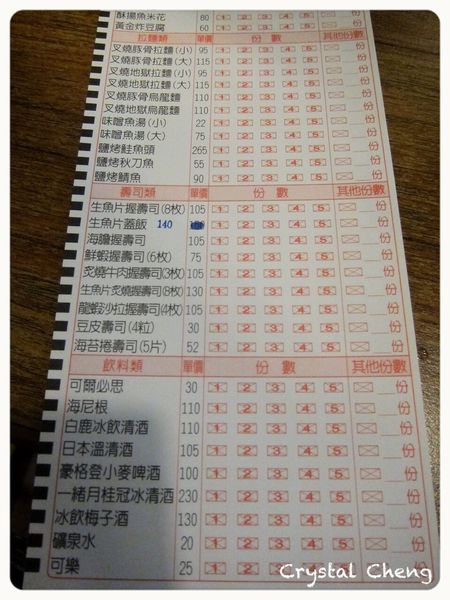 酥揚魚米花 80 1 2 3 4 5 份
黃金炸豆腐 60 1 2 3 4 5 份
拉麵類 單價 份數 其他份數
叉燒豚骨拉麵(小) 95 1 2 3 4 5 份
叉燒豚骨拉麵(大) 115 1 2 3 4 5 份
叉燒地獄拉麵(小) 95 1 2 3 4 5 份
叉燒地獄拉麵(大) 115 1 2 3 4 5 份
叉燒豚骨烏龍麵 110 1 2 3 4 5 份
叉燒地獄烏龍麵 110 1 2 3 4 5 份
味噌魚湯(小) 22 1 2 3 4 5 份
味噌魚湯(大) 75 1 2 3 4 5 份
鹽烤鮭魚頭 265 1 2 3 4 5 份
鹽烤秋刀魚 55 1 2 3 4 5 份
鹽烤鯖魚 90 1 2 3 4 5 份
壽司類 單價 份數 其他份數
生魚片握壽司(8枚) 105 1 2 3 4 5 份
生魚片蓋飯 140 1 2 3 4 5 份
海膽握壽司 105 1 2 3 4 5 份
鮮蝦握壽司(6枚) 75 1 2 3 4 5 份
炙燒牛肉握壽司(3枚) 105 1 2 3 4 5 份
生魚片炙燒握壽司(8枚) 130 1 2 3 4 5 份
龍蝦沙拉握壽司(4枚) 105 1 2 3 4 5 份
豆皮壽司(4粒) 30 1 2 3 4 5 份
海苔捲壽司(5片) 52 1 2 3 4 5 份
飲料類 單價 份數 其他份數
可爾必思 30 1 2 3 4 5 份
海尼根 110 1 2 3 4 5 份
白鹿冰飲清酒 110 1 2 3 4 5 份
日本溫清酒 105 1 2 3 4 5 份
豪格登小麥啤酒 100 1 2 3 4 5 份
一緒月桂冠冰清酒 230 1 2 3 4 5 份
冰飲梅子酒 130 1 2 3 4 5 份
礦泉水 20 1 2 3 4 5 份
可樂 25 1 2 3 4 5 份
Crystal Cheng